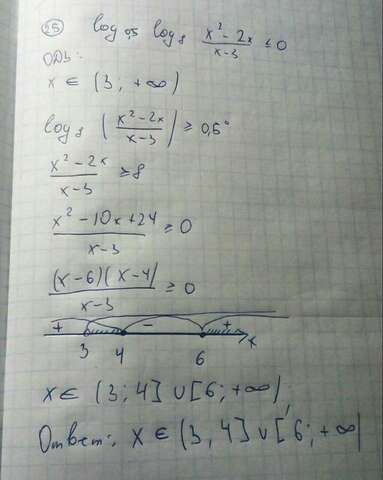 25 log₀,₅ log₈ (x² - 2x)/(x-3) ≤ 0
ОДЗ:
x ∈ (3; +∞)
log₈ ((x² - 2x)/(x-3)) ≥ 0,5⁰
(x² - 2x)/(x-3) ≥ 8
(x² - 10x + 24)/(x-3) ≥ 0
((x-6)(x-4))/(x-3) ≥ 0
+ - +
3 4 6 x
x ∈ (3; 4] ∪ [6; +∞)
Ответ: x ∈ (3; 4] ∪ [6; +∞)